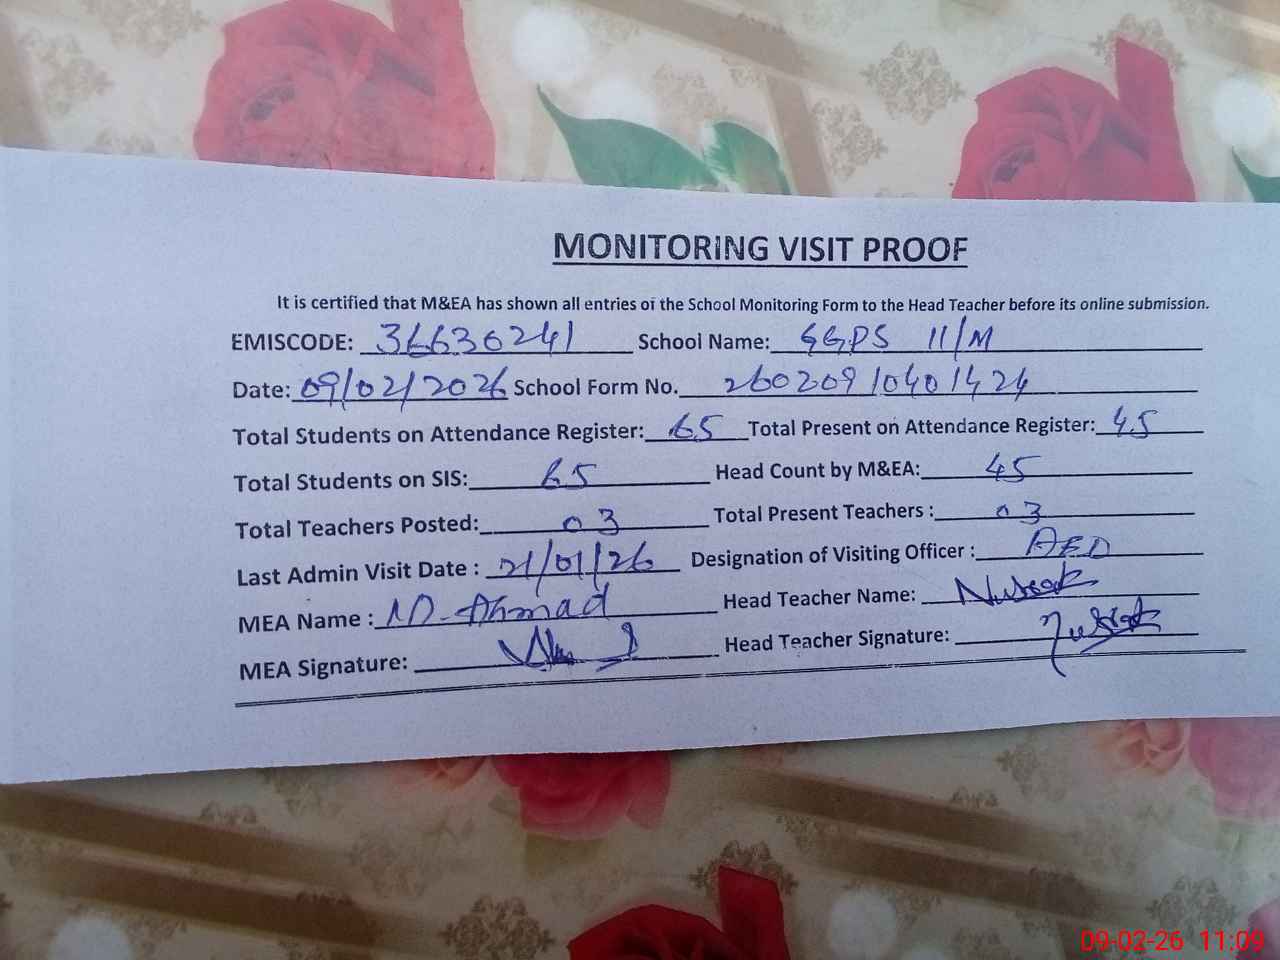 MONITORING VISIT PROOF
It is certified that M&EA has shown all entries of the School Monitoring Form to the Head Teacher before its online submission.
EMISCODE: 36630241 School Name: GGPS 11/M
Date: 09/02/2026 School Form No. 26020910401424
Total Students on Attendance Register: 65 Total Present on Attendance Register: 45
Total Students on SIS: 65 Head Count by M&EA: 45
Total Teachers Posted: 03 Total Present Teachers : 03
Last Admin Visit Date : 21/01/26 Designation of Visiting Officer : AEO
MEA Name : M. Ahmad Head Teacher Name: Nusrat
MEA Signature: Head Teacher Signature: Nusrat
09-02-26 11:09